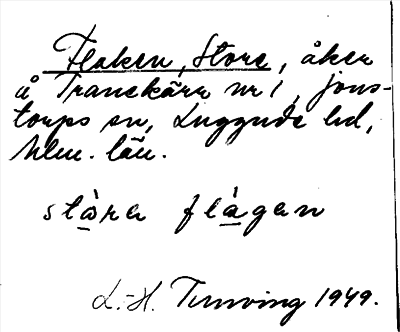 Flaken, Store, åker
å Tranekärr nr 1, Jons-
torps sn, Luggude hd,
Mlm. län.
stàra flàgan
L.-H. Tunving 1949.